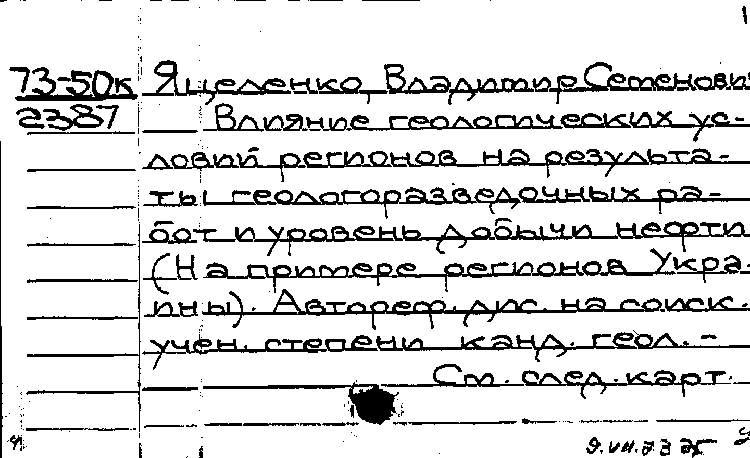 1
73-50к Яцеленко, Владимир Семенович
2387
Влияние геологических ус-
ловий регионов на результа-
ты геологоразведочных ра-
бот и уровень добычи нефти
(На примере регионов Укра-
ины). Автореф. дис. на соиск.
учен. степени канд. геол. -
См. след. карт.